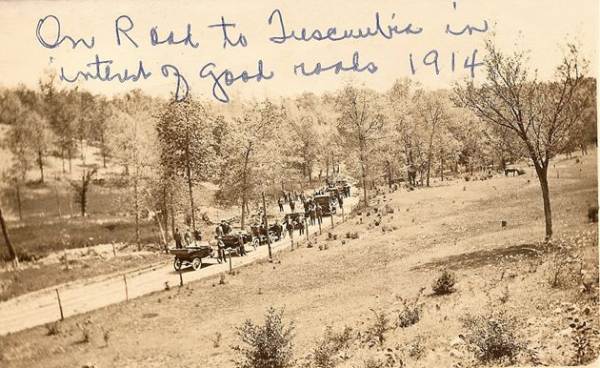 On Road to Tuscumbia in
interest of good roads 1914